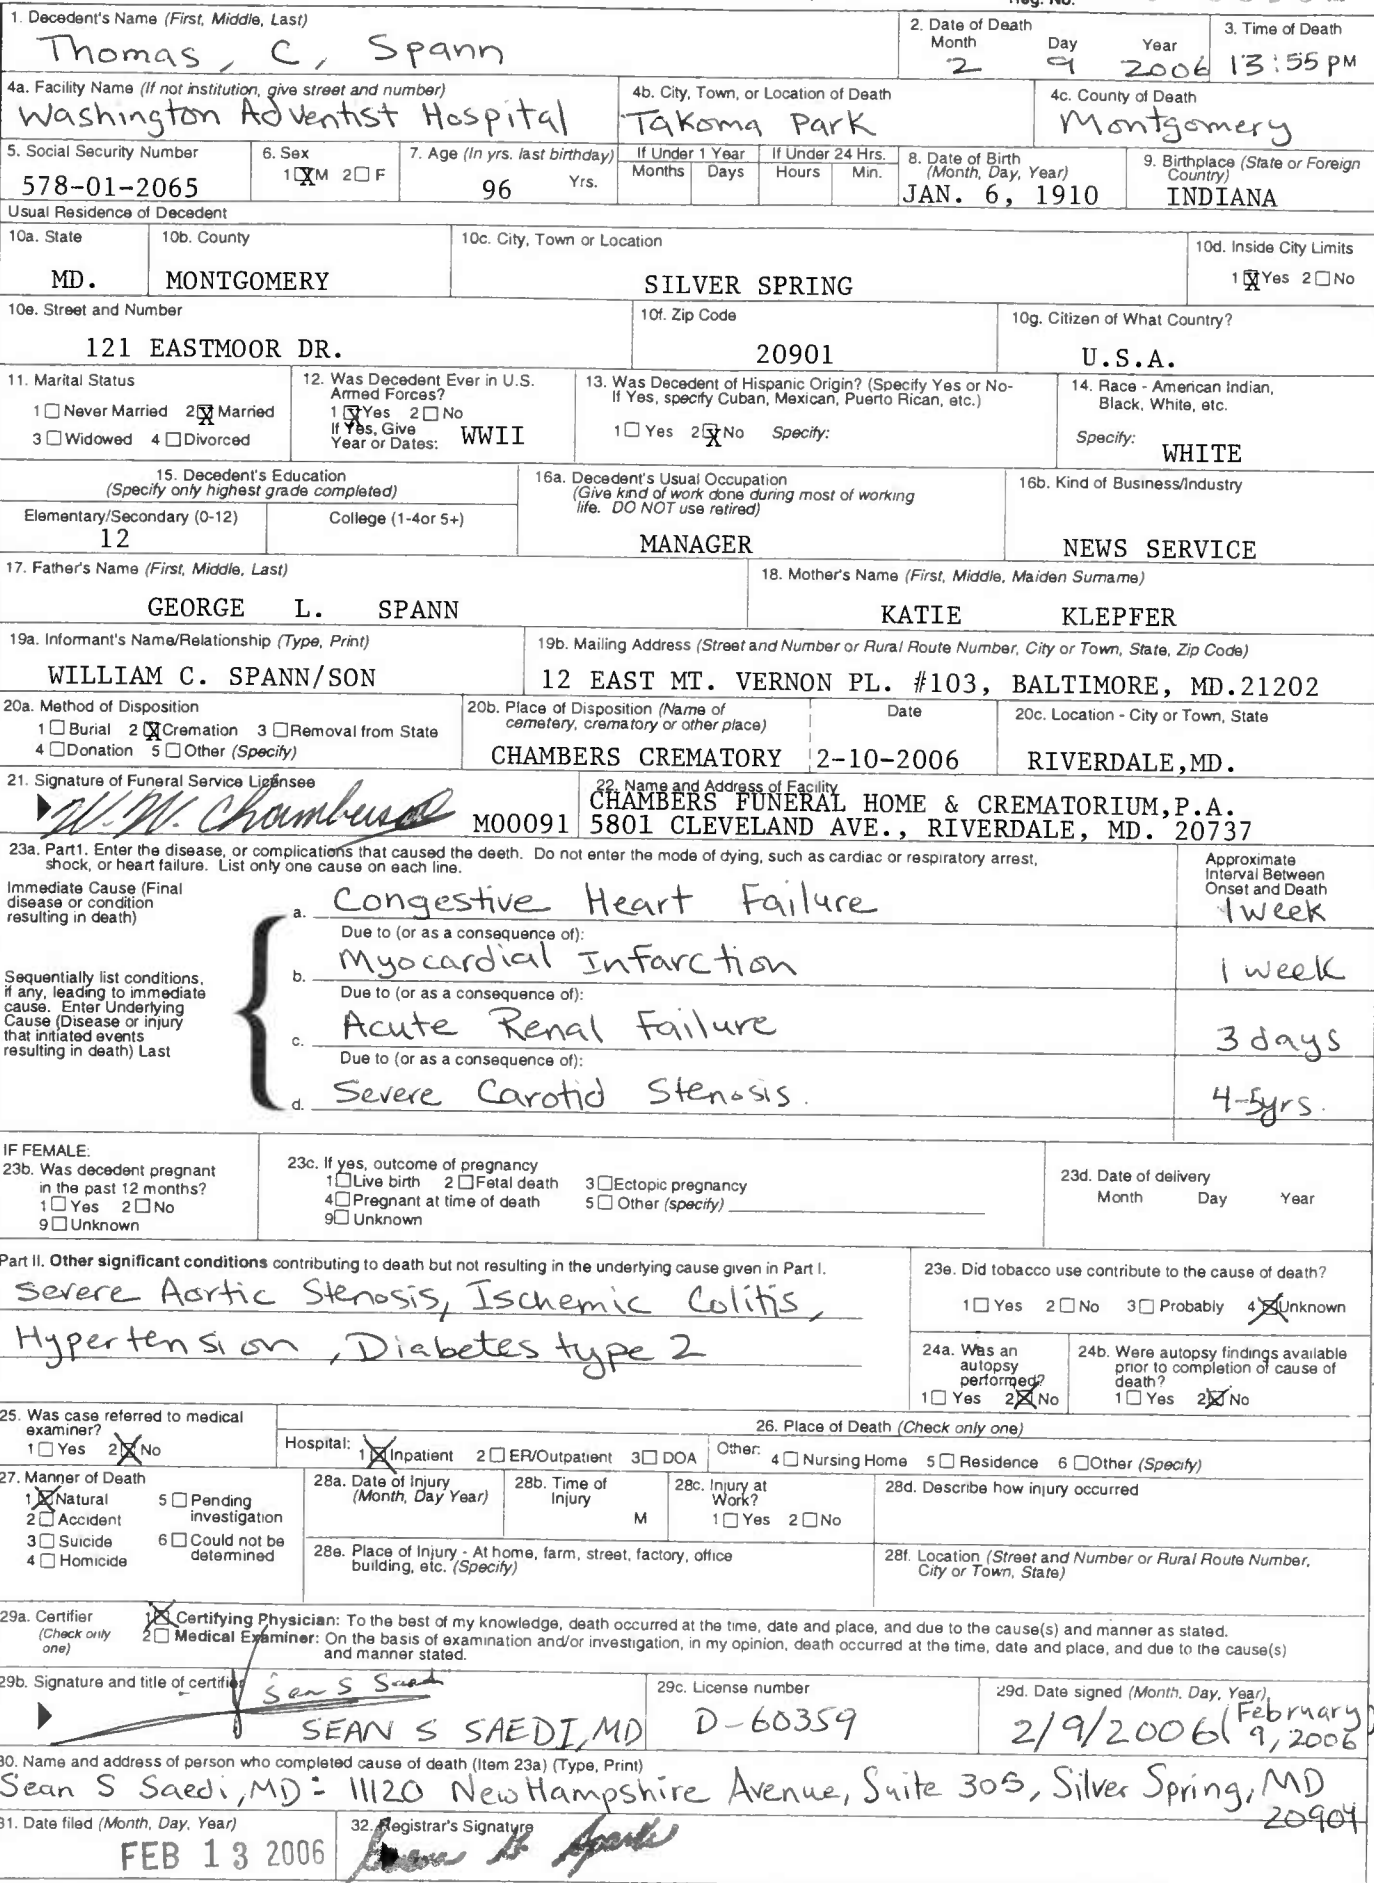 1. Decedent's Name (First, Middle, Last)
Thomas, C, Spann
2. Date of Death
Month Day Year
2 9 2006
3. Time of Death
13:55 PM
4a. Facility Name (If not institution, give street and number)
Washington Adventist Hospital
4b. City, Town, or Location of Death
Takoma Park
4c. County of Death
Montgomery
5. Social Security Number
578-01-2065
6. Sex
1☒M 2☐F
7. Age (In yrs. last birthday)
96 Yrs.
If Under 1 Year
Months Days
If Under 24 Hrs.
Hours Min.
8. Date of Birth
(Month, Day, Year)
JAN. 6, 1910
9. Birthplace (State or Foreign
Country)
INDIANA
Usual Residence of Decedent
10a. State
MD.
10b. County
MONTGOMERY
10c. City, Town or Location
SILVER SPRING
10d. Inside City Limits
1☒Yes 2☐No
10e. Street and Number
121 EASTMOOR DR.
10f. Zip Code
20901
10g. Citizen of What Country?
U.S.A.
11. Marital Status
1☐Never Married 2☒Married
3☐Widowed 4☐Divorced
12. Was Decedent Ever in U.S.
Armed Forces?
1☒Yes 2☐No
If Yes, Give
Year or Dates: WWII
13. Was Decedent of Hispanic Origin? (Specify Yes or No-
If Yes, specify Cuban, Mexican, Puerto Rican, etc.)
1☐Yes 2☒No Specify:
14. Race - American Indian,
Black, White, etc.
Specify:
WHITE
15. Decedent's Education
(Specify only highest grade completed)
Elementary/Secondary (0-12)
12
College (1-4or 5+)
16a. Decedent's Usual Occupation
(Give kind of work done during most of working
life. DO NOT use retired)
MANAGER
16b. Kind of Business/Industry
NEWS SERVICE
17. Father's Name (First, Middle, Last)
GEORGE L. SPANN
18. Mother's Name (First, Middle, Maiden Surname)
KATIE KLEPFER
19a. Informant's Name/Relationship (Type, Print)
WILLIAM C. SPANN/SON
19b. Mailing Address (Street and Number or Rural Route Number, City or Town, State, Zip Code)
12 EAST MT. VERNON PL. #103, BALTIMORE, MD.21202
20a. Method of Disposition
1☐Burial 2☒Cremation 3☐Removal from State
4☐Donation 5☐Other (Specify)
20b. Place of Disposition (Name of
cemetery, crematory or other place)
CHAMBERS CREMATORY
Date
2-10-2006
20c. Location - City or Town, State
RIVERDALE,MD.
21. Signature of Funeral Service Licensee
W. W. Chambers
M00091
22. Name and Address of Facility
CHAMBERS FUNERAL HOME & CREMATORIUM,P.A.
5801 CLEVELAND AVE., RIVERDALE, MD. 20737
23a. Part1. Enter the disease, or complications that caused the deeth. Do not enter the mode of dying, such as cardiac or respiratory arrest,
shock, or heart failure. List only one cause on each line.
Approximate
Interval Between
Onset and Death
Immediate Cause (Final
disease or condition
resulting in death)
a. Congestive Heart Failure
1 week
Due to (or as a consequence of):
b. Myocardial Infarction
1 week
Sequentially list conditions,
if any, leading to immediate
cause. Enter Underlying
Cause (Disease or injury
that initiated events
resulting in death) Last
Due to (or as a consequence of):
c. Acute Renal Failure
3 days
Due to (or as a consequence of):
d. Severe Carotid Stenosis.
4-5yrs.
IF FEMALE:
23b. Was decedent pregnant
in the past 12 months?
1☐Yes 2☐No
9☐Unknown
23c. If yes, outcome of pregnancy
1☐Live birth 2☐Fetal death 3☐Ectopic pregnancy
4☐Pregnant at time of death 5☐Other (specify)
9☐Unknown
23d. Date of delivery
Month Day Year
Part II. Other significant conditions contributing to death but not resulting in the underlying cause given in Part I.
Severe Aortic Stenosis, Ischemic Colitis,
Hypertension, Diabetes type 2
23e. Did tobacco use contribute to the cause of death?
1☐Yes 2☐No 3☐Probably 4☒Unknown
24a. Was an
autopsy
performed?
1☐Yes 2☒No
24b. Were autopsy findings available
prior to completion of cause of
death?
1☐Yes 2☒No
25. Was case referred to medical
examiner?
1☐Yes 2☒No
26. Place of Death (Check only one)
Hospital: 1☒Inpatient 2☐ER/Outpatient 3☐DOA Other: 4☐Nursing Home 5☐Residence 6☐Other (Specify)
27. Manner of Death
1☒Natural 5☐Pending
2☐Accident investigation
3☐Suicide 6☐Could not be
4☐Homicide determined
28a. Date of Injury
(Month, Day Year)
28b. Time of
Injury
M
28c. Injury at
Work?
1☐Yes 2☐No
28d. Describe how injury occurred
28e. Place of Injury - At home, farm, street, factory, office
building, etc. (Specify)
28f. Location (Street and Number or Rural Route Number,
City or Town, State)
29a. Certifier
(Check only
one)
1☒Certifying Physician: To the best of my knowledge, death occurred at the time, date and place, and due to the cause(s) and manner as stated.
2☐Medical Examiner: On the basis of examination and/or investigation, in my opinion, death occurred at the time, date and place, and due to the cause(s)
and manner stated.
29b. Signature and title of certifier
Sean S Saedi
SEAN S SAEDI,MD
29c. License number
D-60359
29d. Date signed (Month, Day, Year)
2/9/2006 (February
9, 2006
30. Name and address of person who completed cause of death (Item 23a) (Type, Print)
Sean S Saedi, MD: 11120 New Hampshire Avenue, Suite 305, Silver Spring, MD
20904
31. Date filed (Month, Day, Year)
FEB 13 2006
32. Registrar's Signature